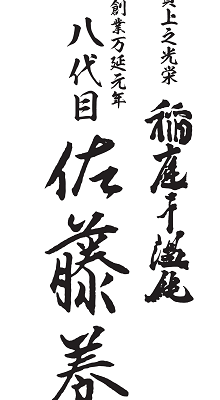 買上之光栄
稲庭干饂飩
創業万延元年
八代目
佐藤養